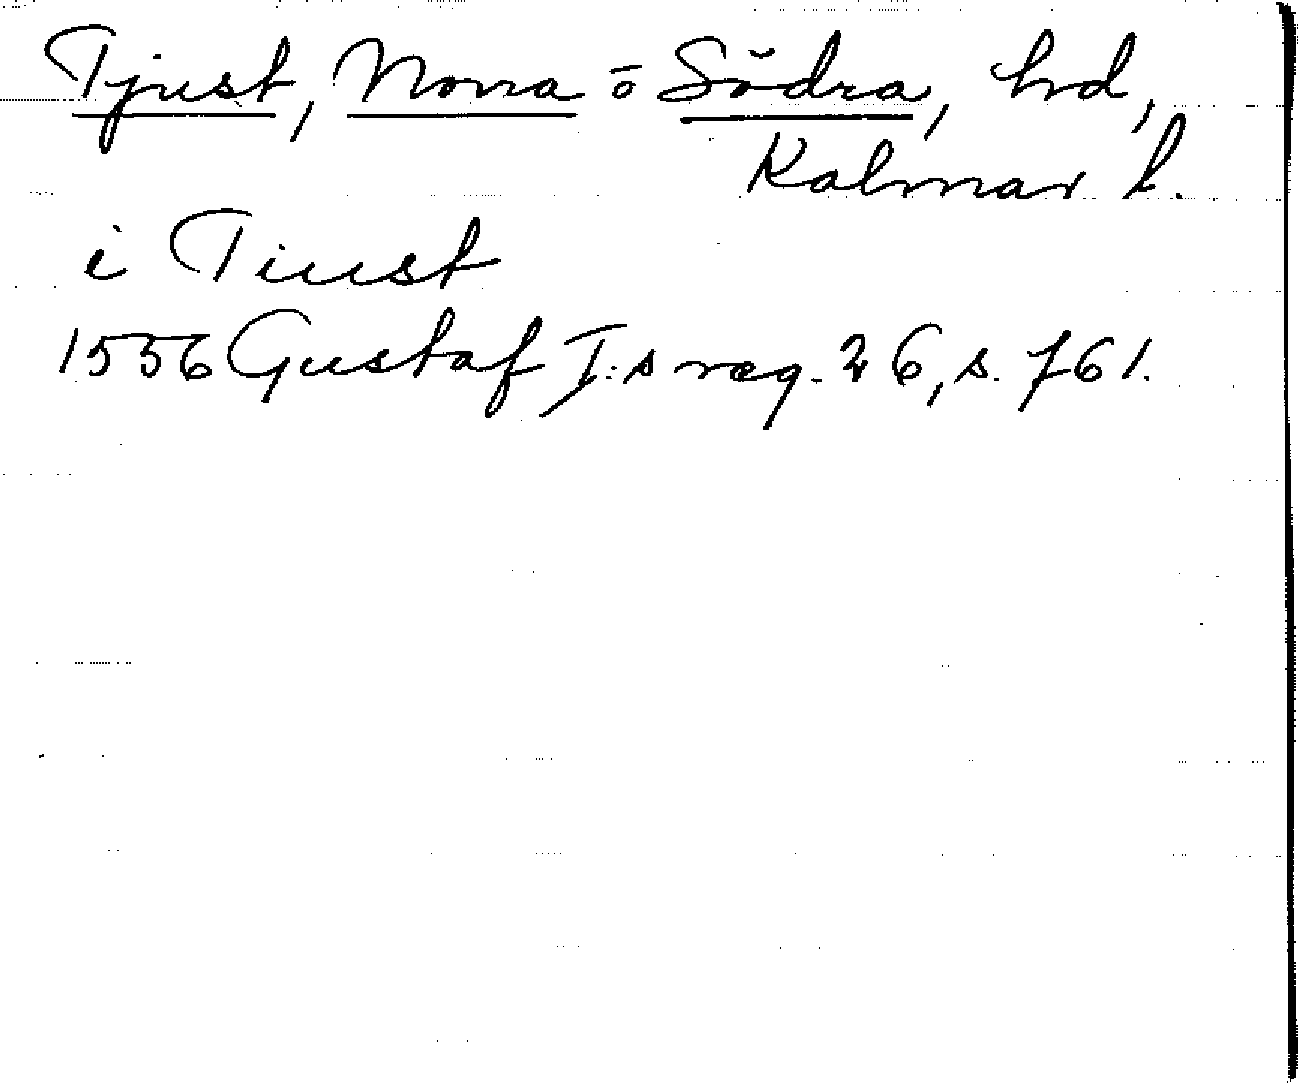 Tjust, Norra o Södra, hd,
Kalmar l.
i Tiust
1556 Gustaf I:s reg. 26, s. 761.